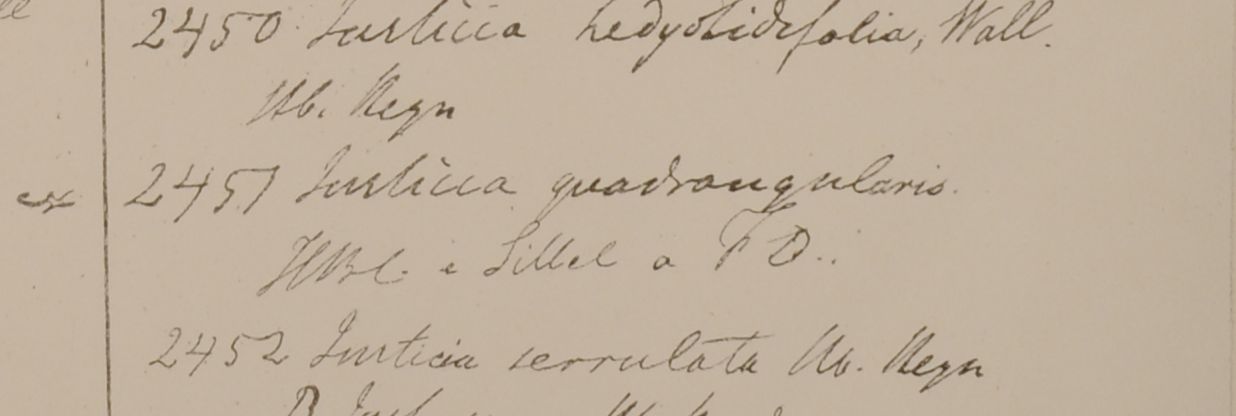 2450 Justicia hedyotidifolia, Wall.
Hb. Heyn
ex 2451 Justicia quadrangularis.
HBC. e Sillet a F D..
2452 Justicia serrulata Hb. Heyn